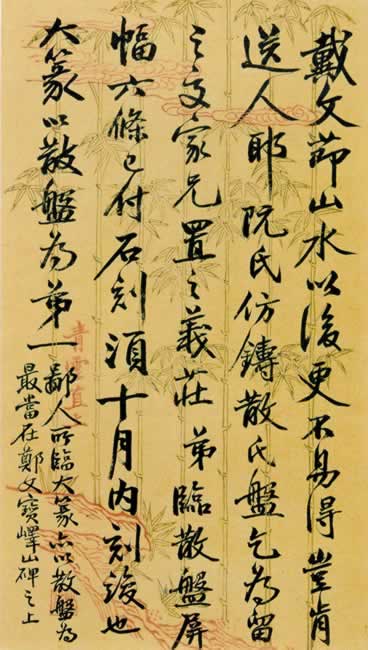 戴文節山水以後更不易得豈肯
送人耶阮氏仿鑄散氏盤乞為留
之文家兄置之義莊弟臨散盤屏
幅六條已付石刻須十月內刻竣也
大篆以散盤為第一鄙人所臨大篆亦以散盤為
最當在鄭文寶嶧山碑之上
青雲直上